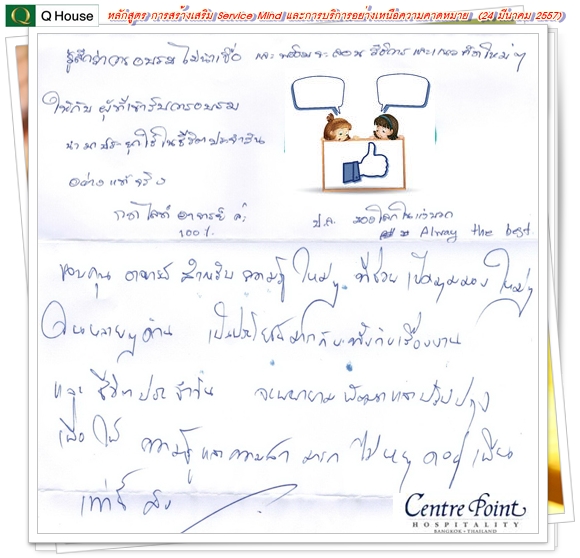 Q Q House
หลักสูตร การสร้างเสริม Service Mind และการบริการอย่างเหนือความคาดหมาย (24 มีนาคม 2557)
รู้สึกว่าการอบรม ไม่น่าเบื่อ และ สอน วิธีการและแนวคิดใหม่ๆ
ให้กับ ผู้ที่เข้ารับการอบรม
นำมาประยุกใช้ในชีวิตประจำวัน
อย่างแท้จริง
อาจารย์ ค่ะ
100%
ป.ล. มองโลกในแง่บวก
Alway the best.
ขอบคุณ อาจารย์ สำหรับ ความรู้ ใหม่ๆ ที่ช่วย เปิดมุมมอง ใหม่ๆ
ในหลายๆด้าน เป็นประโยชน์มากกับทั้งเรื่องงาน
และ ชีวิตประจำวัน จะพยายาม พัฒนาและปรับปรุง
เพื่อ ให้ ความรู้ และความ มาก ไม่หยุดอยู่เพียง
เท่านี้
Centre Point
HOSPITALITY
BANGKOK • THAILAND